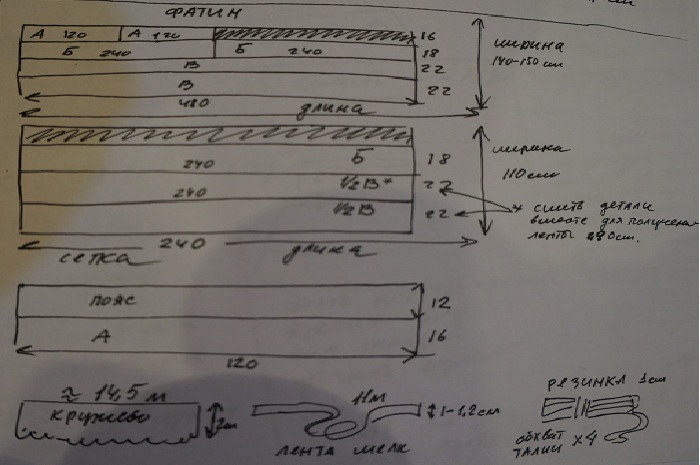 см
ФАТИН
А 120 А 120 16
Б 240 Б 240 18
В 22
В 22
480
длина
ширина
140-150 см
240 Б 18
240 1/2 В* 22
1/2 В 22
ширина
110 см
* сшить детали
вместе для получения
ленты 480 см.
240
сетка длина
пояс 12
А 16
120
≈ 14,5 м
кружево 2см
11м
1-1,2см
лента шелк
РЕЗИНКА 1см
обхват
талии х4